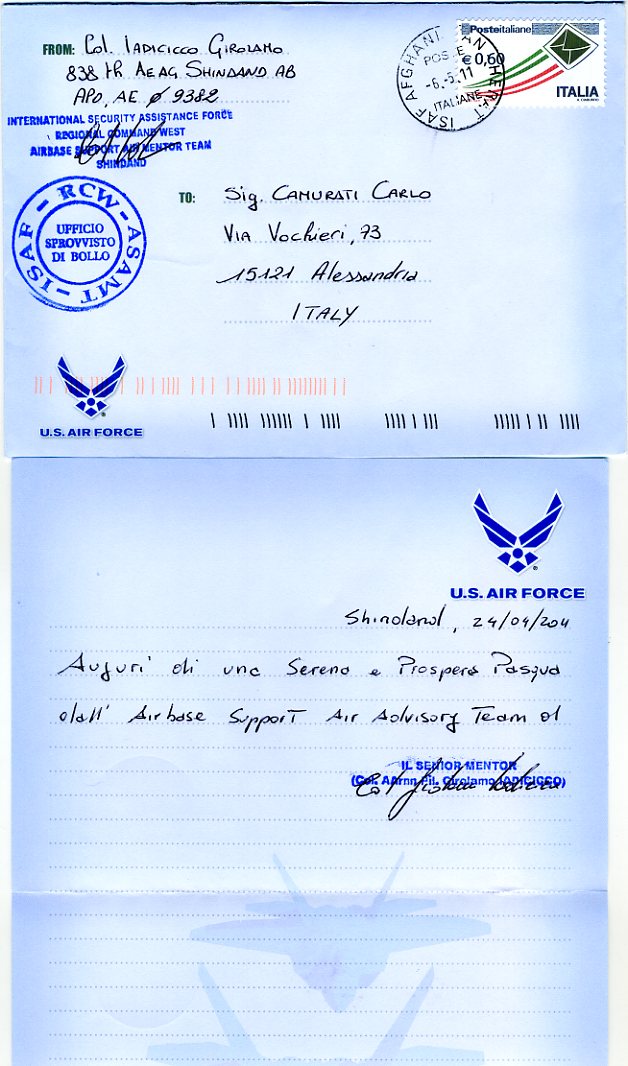 FROM: Col. IADICICCO GIROLAMO
838 th AEAG SHINDAND AB
APO, AE Ø9382
INTERNATIONAL SECURITY ASSISTANCE FORCE
REGIONAL COMMAND WEST
AIRBASE SUPPORT AIR MENTOR TEAM
SHINDAND
Posteitaliane
€ 0,60
ITALIA
ISAF AFGHANISTAN HERAT
POSTE
-6.5.11
ITALIANE
ISAF - RCW - ASAMT -
UFFICIO
SPROVVISTO
DI BOLLO
TO: Sig. CAMURATI CARLO
VIA Vochieri, 73
15121 Alessandria
ITALY
U.S. AIR FORCE
U.S. AIR FORCE
Shindand, 24/04/2011
Auguri di una Serena e Prospera Pasqua
dall' Airbase Support Air Advisory Team di
IL SENIOR MENTOR
(Col. AArnn Pil. Girolamo IADICICCO)